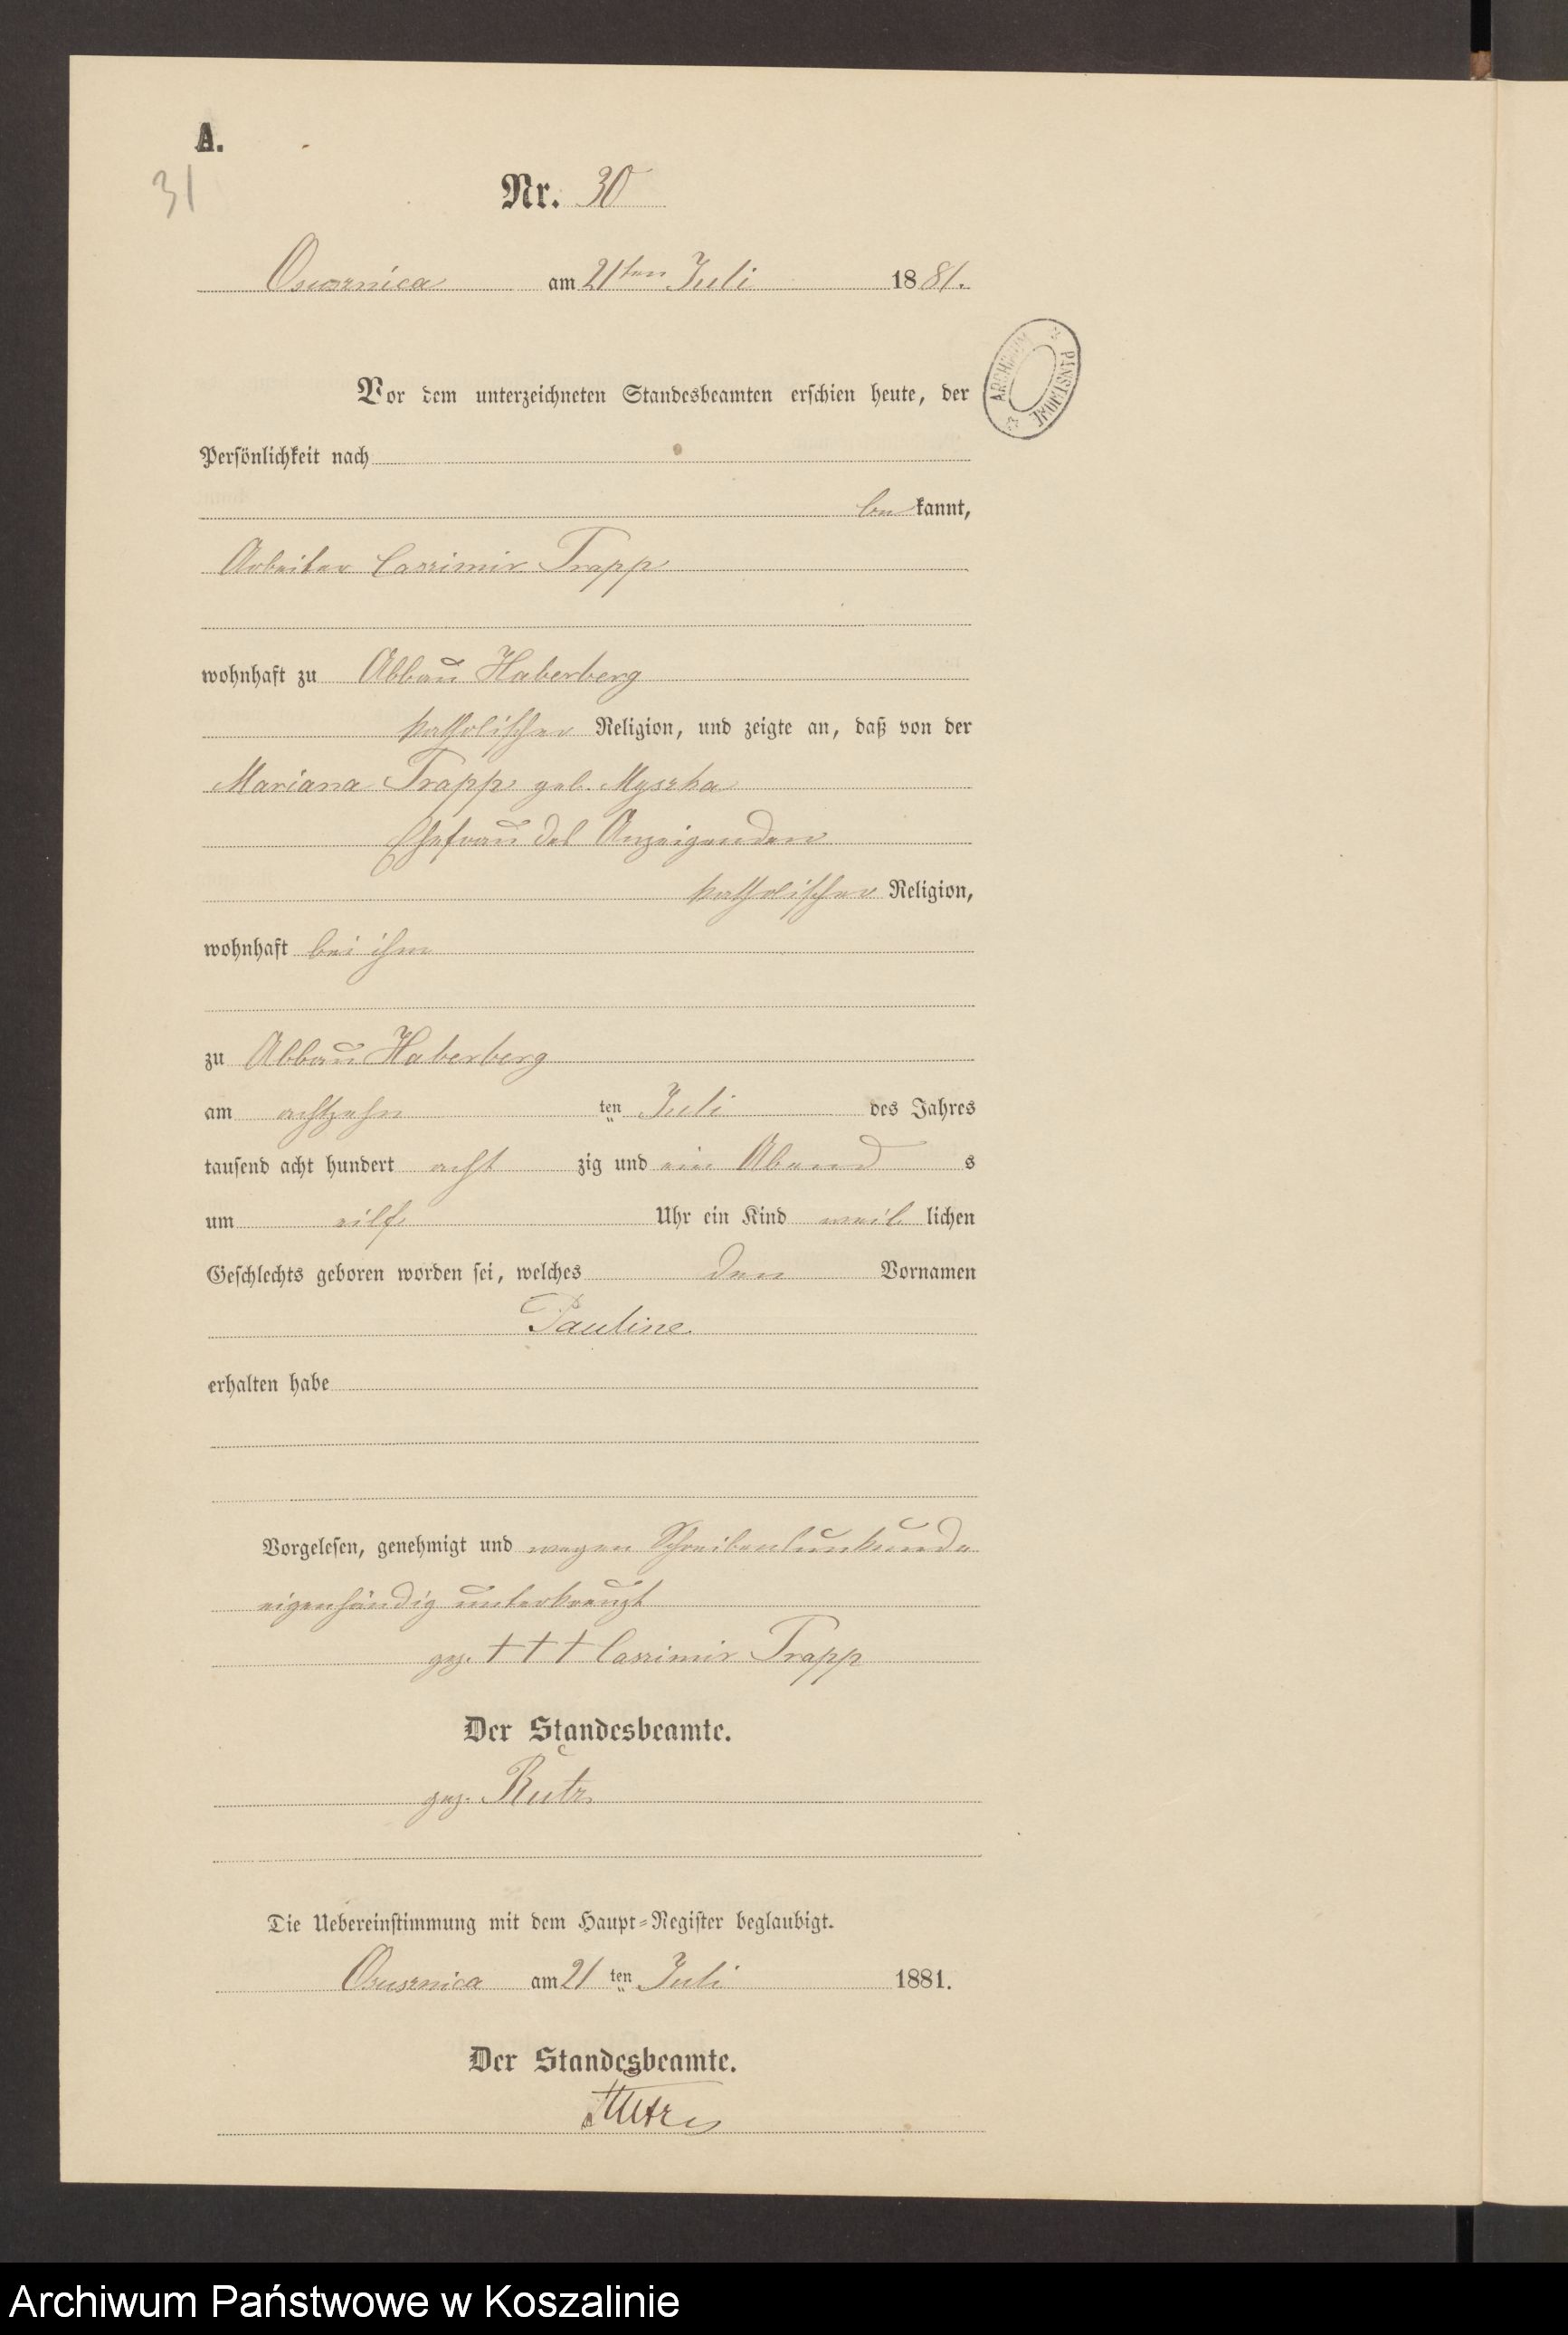 A.
31
Nr. 30
Osusznica am 21ten Juli 1881.
ARCHIWUM PAŃSTWOWE
Vor dem unterzeichneten Standesbeamten erschien heute, der
Persönlichkeit nach
be kannt,
Arbeiter Casimir Trapp
wohnhaft zu Abbau Haberberg
katholischer Religion, und zeigte an, daß von der
Mariana Trapp geb. Myszka
Ehefrau des Anzeigenden
katholischer Religion,
wohnhaft bei ihm
zu Abbau Haberberg
am achtzehn ten Juli des Jahres
tausend acht hundert acht zig und ein Abend s
um eilf Uhr ein Kind weib lichen
Geschlechts geboren worden sei, welches den Vornamen
Pauline
erhalten habe
Vorgelesen, genehmigt und wegen Schreibensunkunde
eigenhändig unterkreuzt
gez. + + + Casimir Trapp
Der Standesbeamte.
gez. Kutz
Die Uebereinstimmung mit dem Haupt-Register beglaubigt.
Osusznica am 21 ten Juli 1881.
Der Standesbeamte.
Archiwum Państwowe w Koszalinie